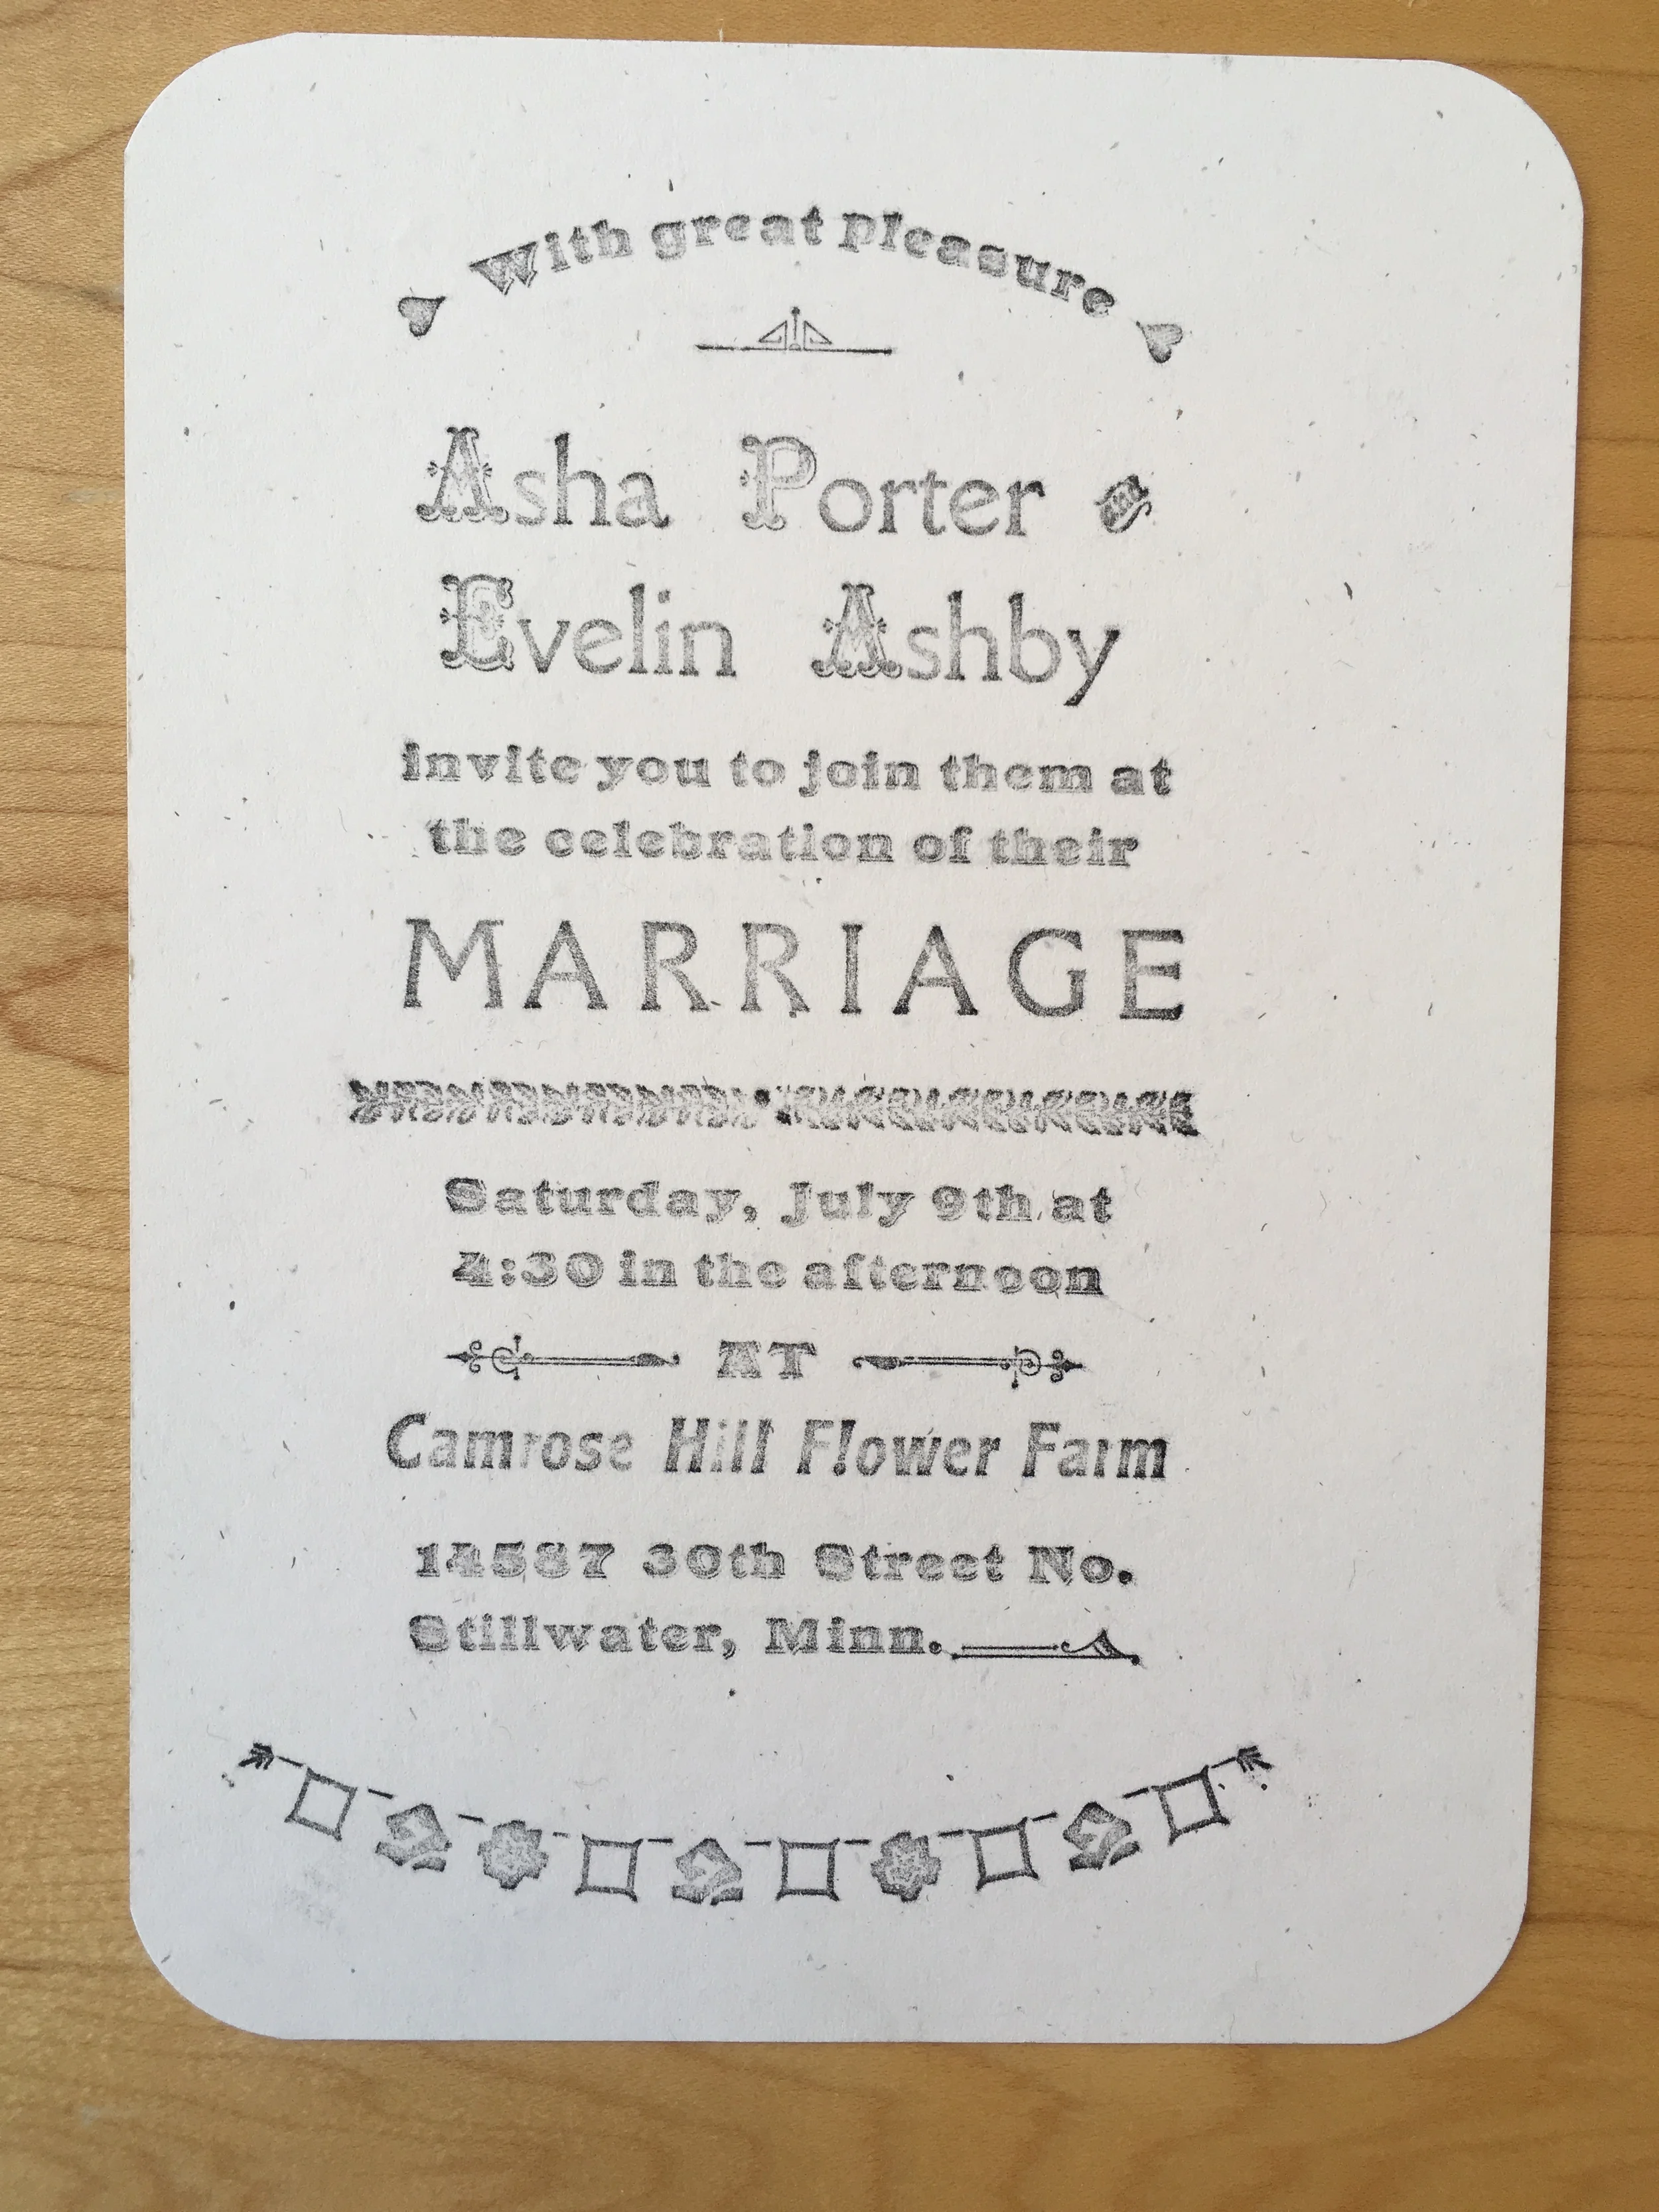 With great pleasure
Asha Porter and
Evelin Ashby
invite you to join them at
the celebration of their
MARRIAGE
Saturday, July 9th at
4:30 in the afternoon
AT
Camrose Hill Flower Farm
14587 30th Street No.
Stillwater, Minn.